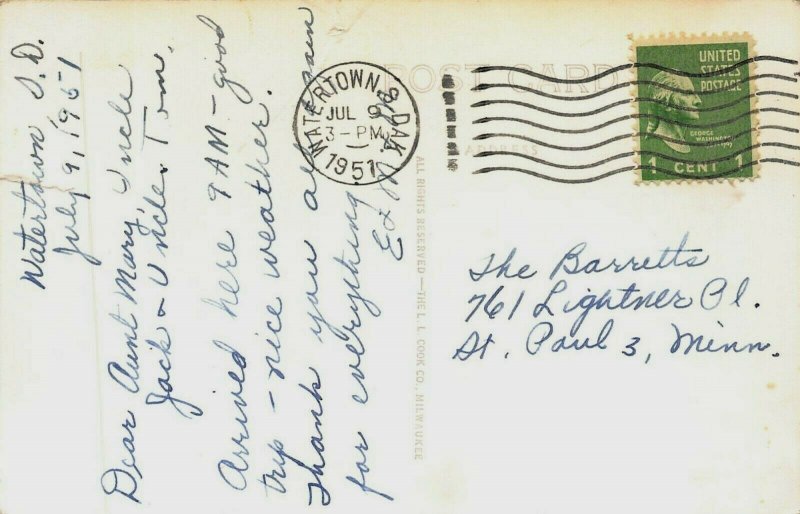 Watertown, S.D.
July 9, 1951
Dear Aunt Mary, Uncle
Jack & Uncle Tom,
Arrived here 9 AM - good
trip - nice weather.
Thank you all
for everything
POST CARD
ADDRESS
WATERTOWN, S. DAK.
JUL 9
3 - PM
1951
UNITED
STATES
POSTAGE
GEORGE WASHINGTON
1 CENT 1
The Barretts
761 Lightner Pl.
St. Paul 3, Minn.
ALL RIGHTS RESERVED—THE L. L. COOK CO., MILWAUKEE